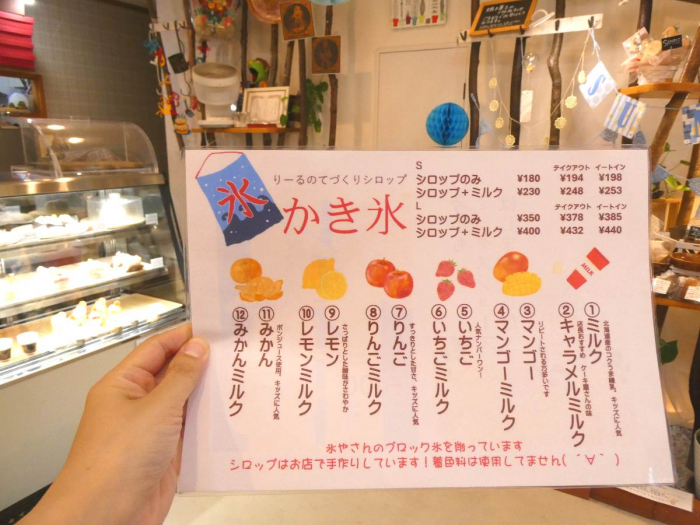 氷
りーるのてづくりシロップ
かき氷
S
テイクアウト イートイン
シロップのみ ¥180 ¥194 ¥198
シロップ+ミルク ¥230 ¥248 ¥253
L
テイクアウト イートイン
シロップのみ ¥350 ¥378 ¥385
シロップ+ミルク ¥400 ¥432 ¥440
MILK
①ミルク
北海道産のコクうま練乳。キッズに人気
②キャラメルミルク
店長おすすめ ケーキ屋さんの味
③マンゴー
リピートされる方多いです
④マンゴーミルク
⑤いちご
人気ナンバーワン!
⑥いちごミルク
⑦りんご
すっきりとした甘さ、キッズに人気
⑧りんごミルク
⑨レモン
さっぱりとした酸味がさわやか
⑩レモンミルク
⑪みかん
ポンジュース使用、キッズに人気
⑫みかんミルク
氷やさんのブロック氷を削っています
シロップはお店で手作りしています!着色料は使用してません( ´∀` )